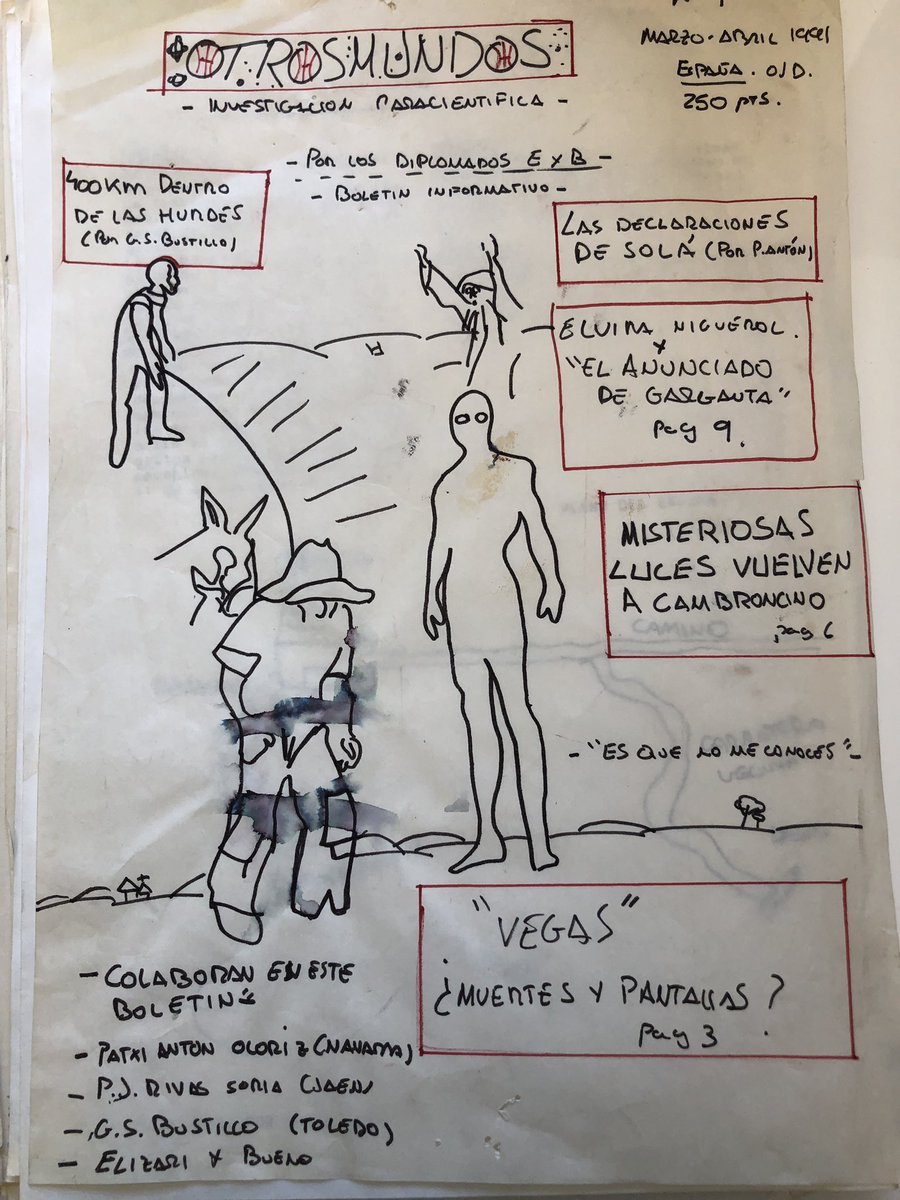 OTROSMUNDOS
- INVESTIGACION PARACIENTIFICA -
MARZO-ABRIL 1991
ESPAÑA. O/D.
250 pts.
- POR LOS DIPLOMADOS E y B -
- BOLETIN INFORMATIVO -
400 KM DENTRO
DE LAS HURDES
(POR G.S. BUSTILLO)
LAS DECLARACIONES
DE SOLÁ (POR P. ANTÓN)
ELVIRA NIGUEROL.
y
"EL ANUNCIADO
DE GARGANTA"
pag 9.
MISTERIOSAS
LUCES VUELVEN
A CAMBRONCINO
pag 6
CAMINO
- "ES QUE NO ME CONOCES" -
"VEGAS"
¿MUERTES Y PANTALLAS?
pag 3
- COLABORAN EN ESTE
BOLETIN:
- PATXI ANTON OLORIZ (NAVARRA)
- P.J. RIVAS SORIA (JAEN)
- G.S. BUSTILLO (TOLEDO)
- ELIZARI y BUENO